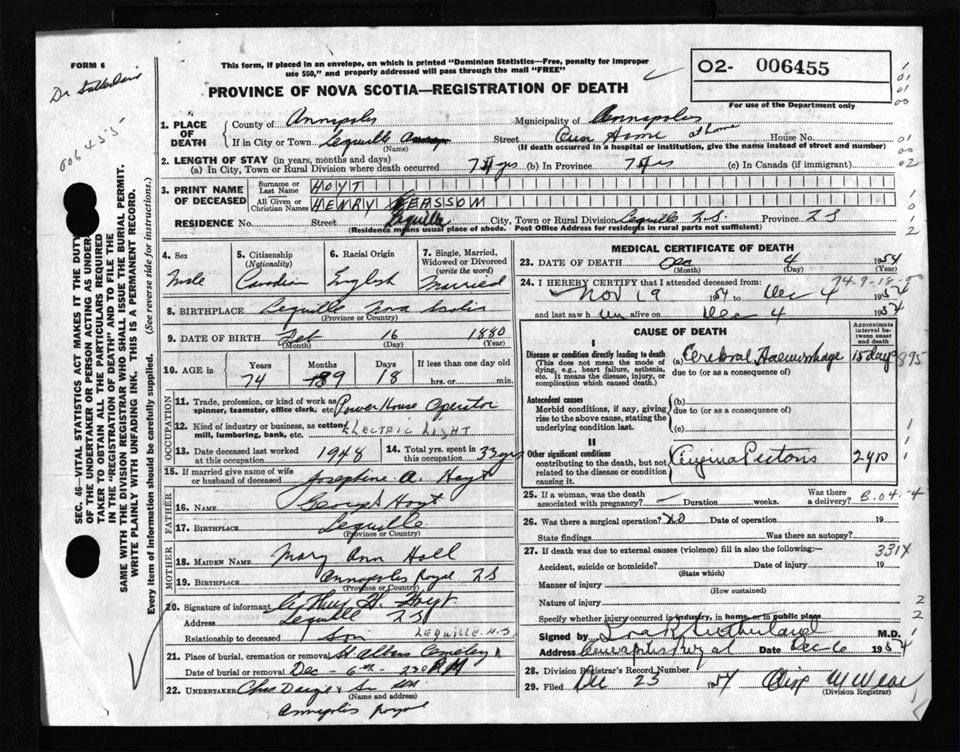 FORM 6
This form, if placed in an envelope, on which is printed "Dominion Statistics—Free, penalty for improper
use $50," and properly addressed will pass through the mail "FREE"
PROVINCE OF NOVA SCOTIA—REGISTRATION OF DEATH
O2- 006455
For use of the Department only
006455
SEC. 46—VITAL STATISTICS ACT MAKES IT THE DUTY
OF THE UNDERTAKER OR PERSON ACTING AS UNDER-
TAKER TO OBTAIN ALL THE PARTICULARS REQUIRED
IN THE "REGISTRATION OF DEATH" AND TO FILE THE
SAME WITH THE DIVISION REGISTRAR WHO SHALL ISSUE THE BURIAL PERMIT.
WRITE PLAINLY WITH UNFADING INK. THIS IS A PERMANENT RECORD.
Every item of information should be carefully supplied. (See reverse side for instructions.)
1. PLACE OF DEATH
County of Annapolis Municipality of Annapolis
If in City or Town Lequille Street Own Home at home House No.
(Name) (If death occurred in a hospital or institution, give the name instead of street and number)
2. LENGTH OF STAY (in years, months and days)
(a) In City, Town or Rural Division where death occurred 74 yrs (b) In Province 74 yrs (c) In Canada (if immigrant)
3. PRINT NAME OF DECEASED
Surname or Last Name HOYT
All Given or Christian Names HENRY EASSON
RESIDENCE No. Street Lequille City, Town or Rural Division Lequille N.S. Province N.S.
(Residence means usual place of abode. Post Office Address for residents in rural parts not sufficient)
4. Sex
Male
5. Citizenship
(Nationality)
Canadian
6. Racial Origin
English
7. Single, Married, Widowed or Divorced
(write the word)
Married
8. BIRTHPLACE Lequille Nova Scotia
(Province or Country)
9. DATE OF BIRTH Feb 6 1880
(Month) (Day) (Year)
10. AGE in Years Months Days If less than one day old
74 9 18 hrs. or min.
OCCUPATION
11. Trade, profession or kind of work as spinner, teamster, office clerk, etc. Power House Operator
12. Kind of industry or business, as cotton mill, lumbering, bank, etc. ELECTRIC LIGHT
13. Date deceased last worked at this occupation 1948 14. Total yrs. spent in this occupation 33 yrs
15. If married give name of wife or husband of deceased Josephine A. Hoyt
FATHER
16. NAME George S Hoyt
17. BIRTHPLACE Lequille
(Province or Country)
MOTHER
18. MAIDEN NAME Mary Ann Hall
19. BIRTHPLACE Annapolis Royal N.S.
(Province or Country)
20. Signature of informant H. Hoyt
Address Lequille N.S.
Relationship to deceased Son LEQUILLE. N.S.
21. Place of burial, cremation or removal St. Albans Cemetery
Date of burial or removal Dec - 6th - 2:30 P.M
22. UNDERTAKER
(Name and address)
Annapolis Royal
MEDICAL CERTIFICATE OF DEATH
23. DATE OF DEATH Dec 4 1954
(Month) (Day) (Year)
74-9-18
24. I HEREBY CERTIFY that I attended deceased from:
Nov 19 1954 to Dec 4 1954
and last saw him alive on Dec 4 1954
CAUSE OF DEATH
Approximate interval between onset and death
I
Disease or condition directly leading to death
(This does not mean the mode of dying, e.g., heart failure, asthenia, etc. It means the disease, injury, or complication which caused death.)
(a) Cerebral Haemorrhage 15 days
due to (or as a consequence of)
Antecedent causes
Morbid conditions, if any, giving rise to the above cause, stating the underlying condition last.
(b)
due to (or as a consequence of)
(c)
II
Other significant conditions
contributing to the death, but not related to the disease or condition causing it.
Angina Pectoris 2 yrs
25. If a woman, was the death associated with pregnancy? Duration weeks. Was there a delivery?
B-04-4
26. Was there a surgical operation? No Date of operation 19
State findings Was there an autopsy?
27. If death was due to external causes (violence) fill in also the following:— 331X
Accident, suicide or homicide? Date of injury 19
(State which)
Manner of injury
(How sustained)
Nature of injury
Specify whether injury occurred in industry, in home, or in public place
Signed by Sutherland M.D.
Address Annapolis Royal Date Dec 6 1954
28. Division Registrar's Record Number
29. Filed Dec 23 1954
(Division Registrar)